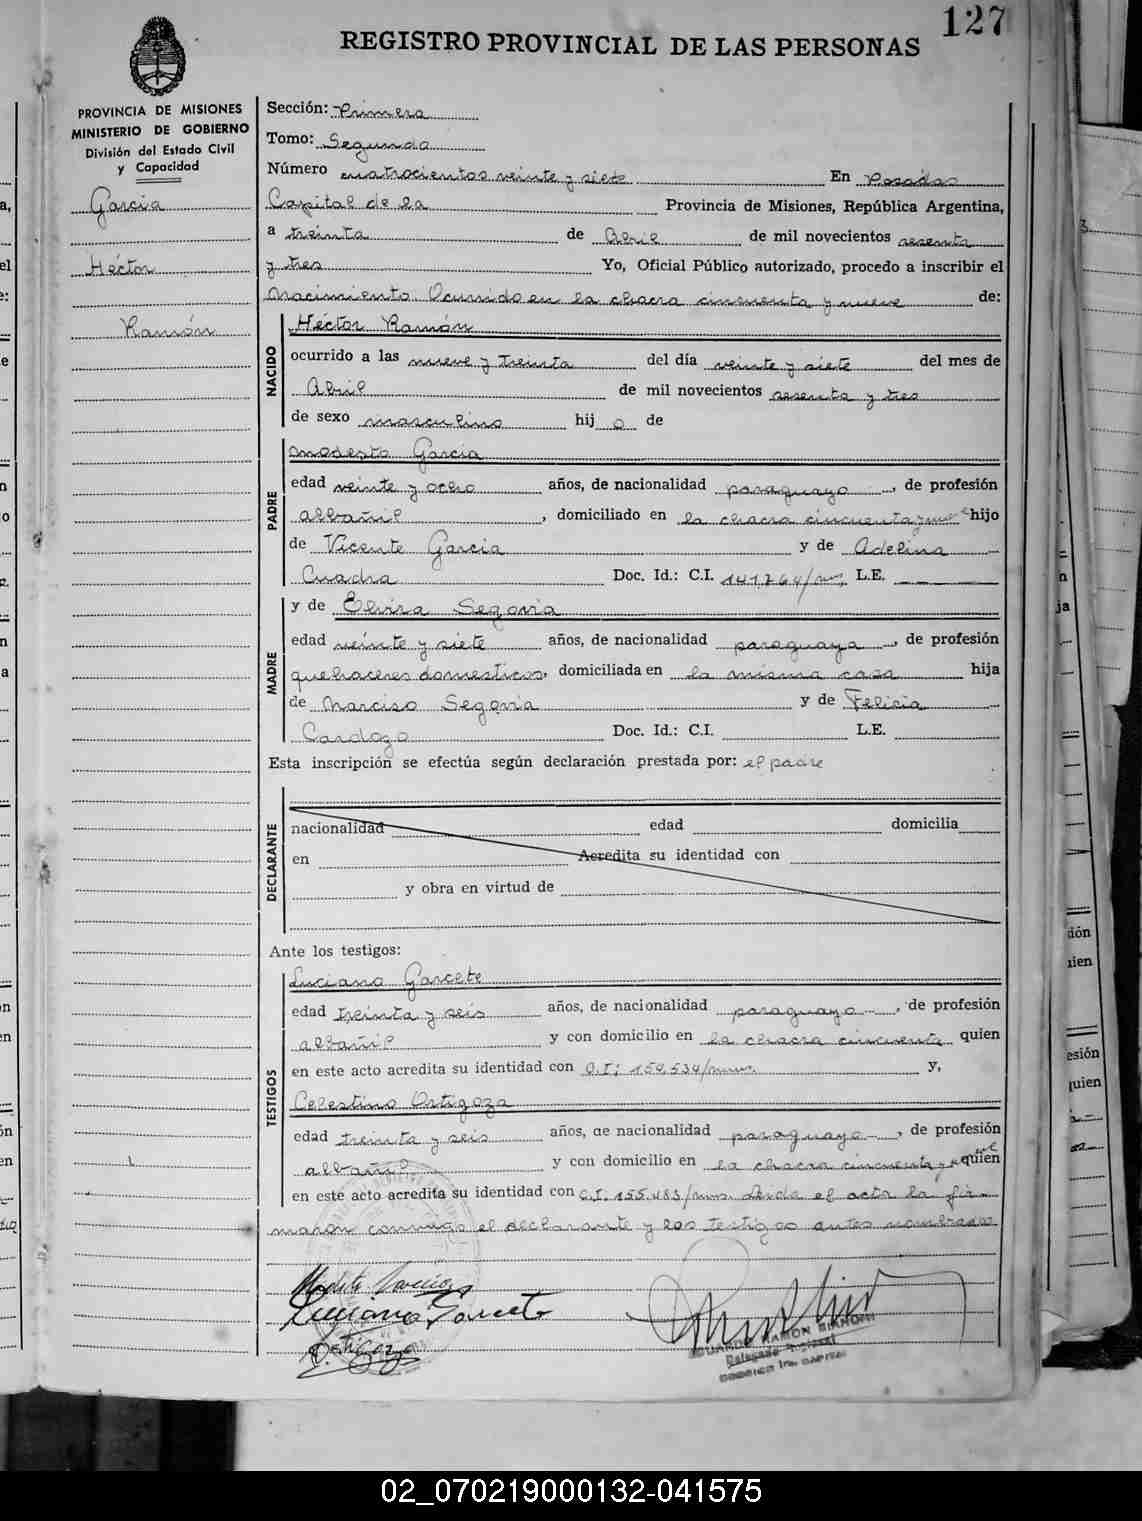 127
REGISTRO PROVINCIAL DE LAS PERSONAS
PROVINCIA DE MISIONES
MINISTERIO DE GOBIERNO
División del Estado Civil
y Capacidad
García
Héctor
Ramón
Sección: Primera
Tomo: Segundo
Número cuatrocientos veinte y siete En Posadas
Capital de la Provincia de Misiones, República Argentina,
a treinta de Abril de mil novecientos sesenta
y tres Yo, Oficial Público autorizado, procedo a inscribir el
nacimiento. Ocurrido en la chacra cincuenta y nueve de:
NACIDO
Héctor Ramón
ocurrido a las nueve y treinta del día veinte y siete del mes de
Abril de mil novecientos sesenta y tres
de sexo masculino hijo de
PADRE
Modesto García
edad veinte y ocho años, de nacionalidad paraguayo, de profesión
albañil, domiciliado en la chacra cincuenta y nueve hijo
de Vicente García y de Adelina
Cuadra Doc. Id.: C.I. 141.764/ L.E.
MADRE
y de Elvira Segovia
edad veinte y siete años, de nacionalidad paraguaya, de profesión
quehaceres domesticos, domiciliada en la misma casa hija
de Narciso Segovia y de Felicia
Cardozo Doc. Id.: C.I. L.E.
Esta inscripción se efectúa según declaración prestada por: el padre
DECLARANTE
nacionalidad edad domicilia
en Acredita su identidad con
y obra en virtud de
Ante los testigos:
TESTIGOS
Luciano Garcete
edad treinta y seis años, de nacionalidad paraguayo, de profesión
albañil y con domicilio en la chacra cincuenta quien
en este acto acredita su identidad con C.I: 150.534/mnes. y,
Celestino Ortigoza
edad treinta y seis años, de nacionalidad paraguayo, de profesión
albañil y con domicilio en la chacra cincuenta y nueve quien
en este acto acredita su identidad con C.I. 155.483/mns. Leída el acta la fir-
maron conmigo el declarante y los testigos antes nombrados
Luciano Garcete
Ortigoza
RAMON BIANCHI
02_070219000132-041575